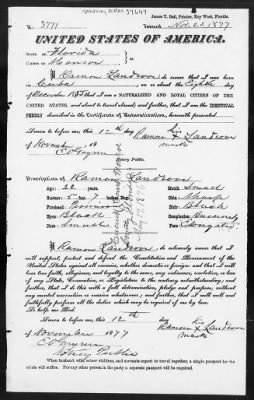 James T. Ball, Printer, Key West, Florida.
No. 3771
Issued Nov 22 1877
UNITED STATES OF AMERICA.
STATE OF Florida
COUNTY OF Monroe
I, Ramon Landrove do swear that I was born
in Cuba on or about the Eighth day
of December 1855 that I am a NATURALIZED AND LOYAL CITIZEN OF THE
UNITED STATES, and about to travel abroad; and further, that I am the IDENTICAL
PERSON described in the Certificate of Naturalization, herewith presented.
Sworn to before me, this 12th day
of November, 18
Ramon X Landrove
his
mark
Notary Public.
Description of Ramon Landrove
Age: 22 years.
Mouth: Small
Stature: 5 7
Chin: Sharp
Forehead:
Hair: Black
Eyes: Black
Complexion:
Nose: Small
Face: Elongated
I, Ramon Landrove do solemnly swear that I will
support, protect and defend the Constitution and Government of the
United States against all enemies, whether domestic or foreign; and that I will
bear true faith, allegiance, and loyalty to the same, any ordinance, resolution, or law
of any State, Convention, or Legislature to the contrary notwithstanding; and further,
that I do this with a full determination, pledge and purpose, without any
mental reservation or evasion whatsoever; and further, that I will well and
faithfully perform all the duties which may be required of me by law.
So help me God.
Sworn to before me, this 12th day
of November 1877
Ramon X Landrove
his
mark
Notary Public
When husband, wife, minor children, and servants expect to travel together, a single passport for the
whole will suffice. For any other person in the party a separate passport will be required.